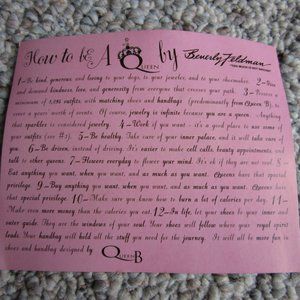 How to be A Queen by Beverly Feldman
1—Be kind, generous, and loving to your dogs, to your jeweler, and to your shoemaker. 2—Give
and demand kindness, love, and generosity from everyone that crosses your path. 3—Possess a
minimum of outfits with matching shoes and handbags (predominantly from Queen B), to
cover a years' worth of events. Of course, jewelry is infinite because you are a queen. Anything
that sparkles is considered jewelry. 4—Work if you want - it's a good place to use some of
your outfits (see #3). 5—Be healthy. Take care of your inner palace, and it will take care of
you. 6—Be driven, instead of driving. It's easier to make cell calls, beauty appointments, and
talk to other queens. 7—Flowers everyday to flower your mind. It's ok if they are not real. 8—
Eat anything you want, when you want, and as much as you want. Queens have that special
privilege. 9—Buy anything you want, when you want, and as much as you want. Queens have
that special privilege. 10—Make sure you know how to burn a lot of calories per day. 11—
Make even more money than the calories you eat. 12—In life, let your shoes be your inner and
outer guide. They are the windows of your soul. Your shoes will follow where your royal spirit
leads. Your handbag will hold all the stuff you need for the journey. It will all be more fun in
shoes and handbag designed by Queen B